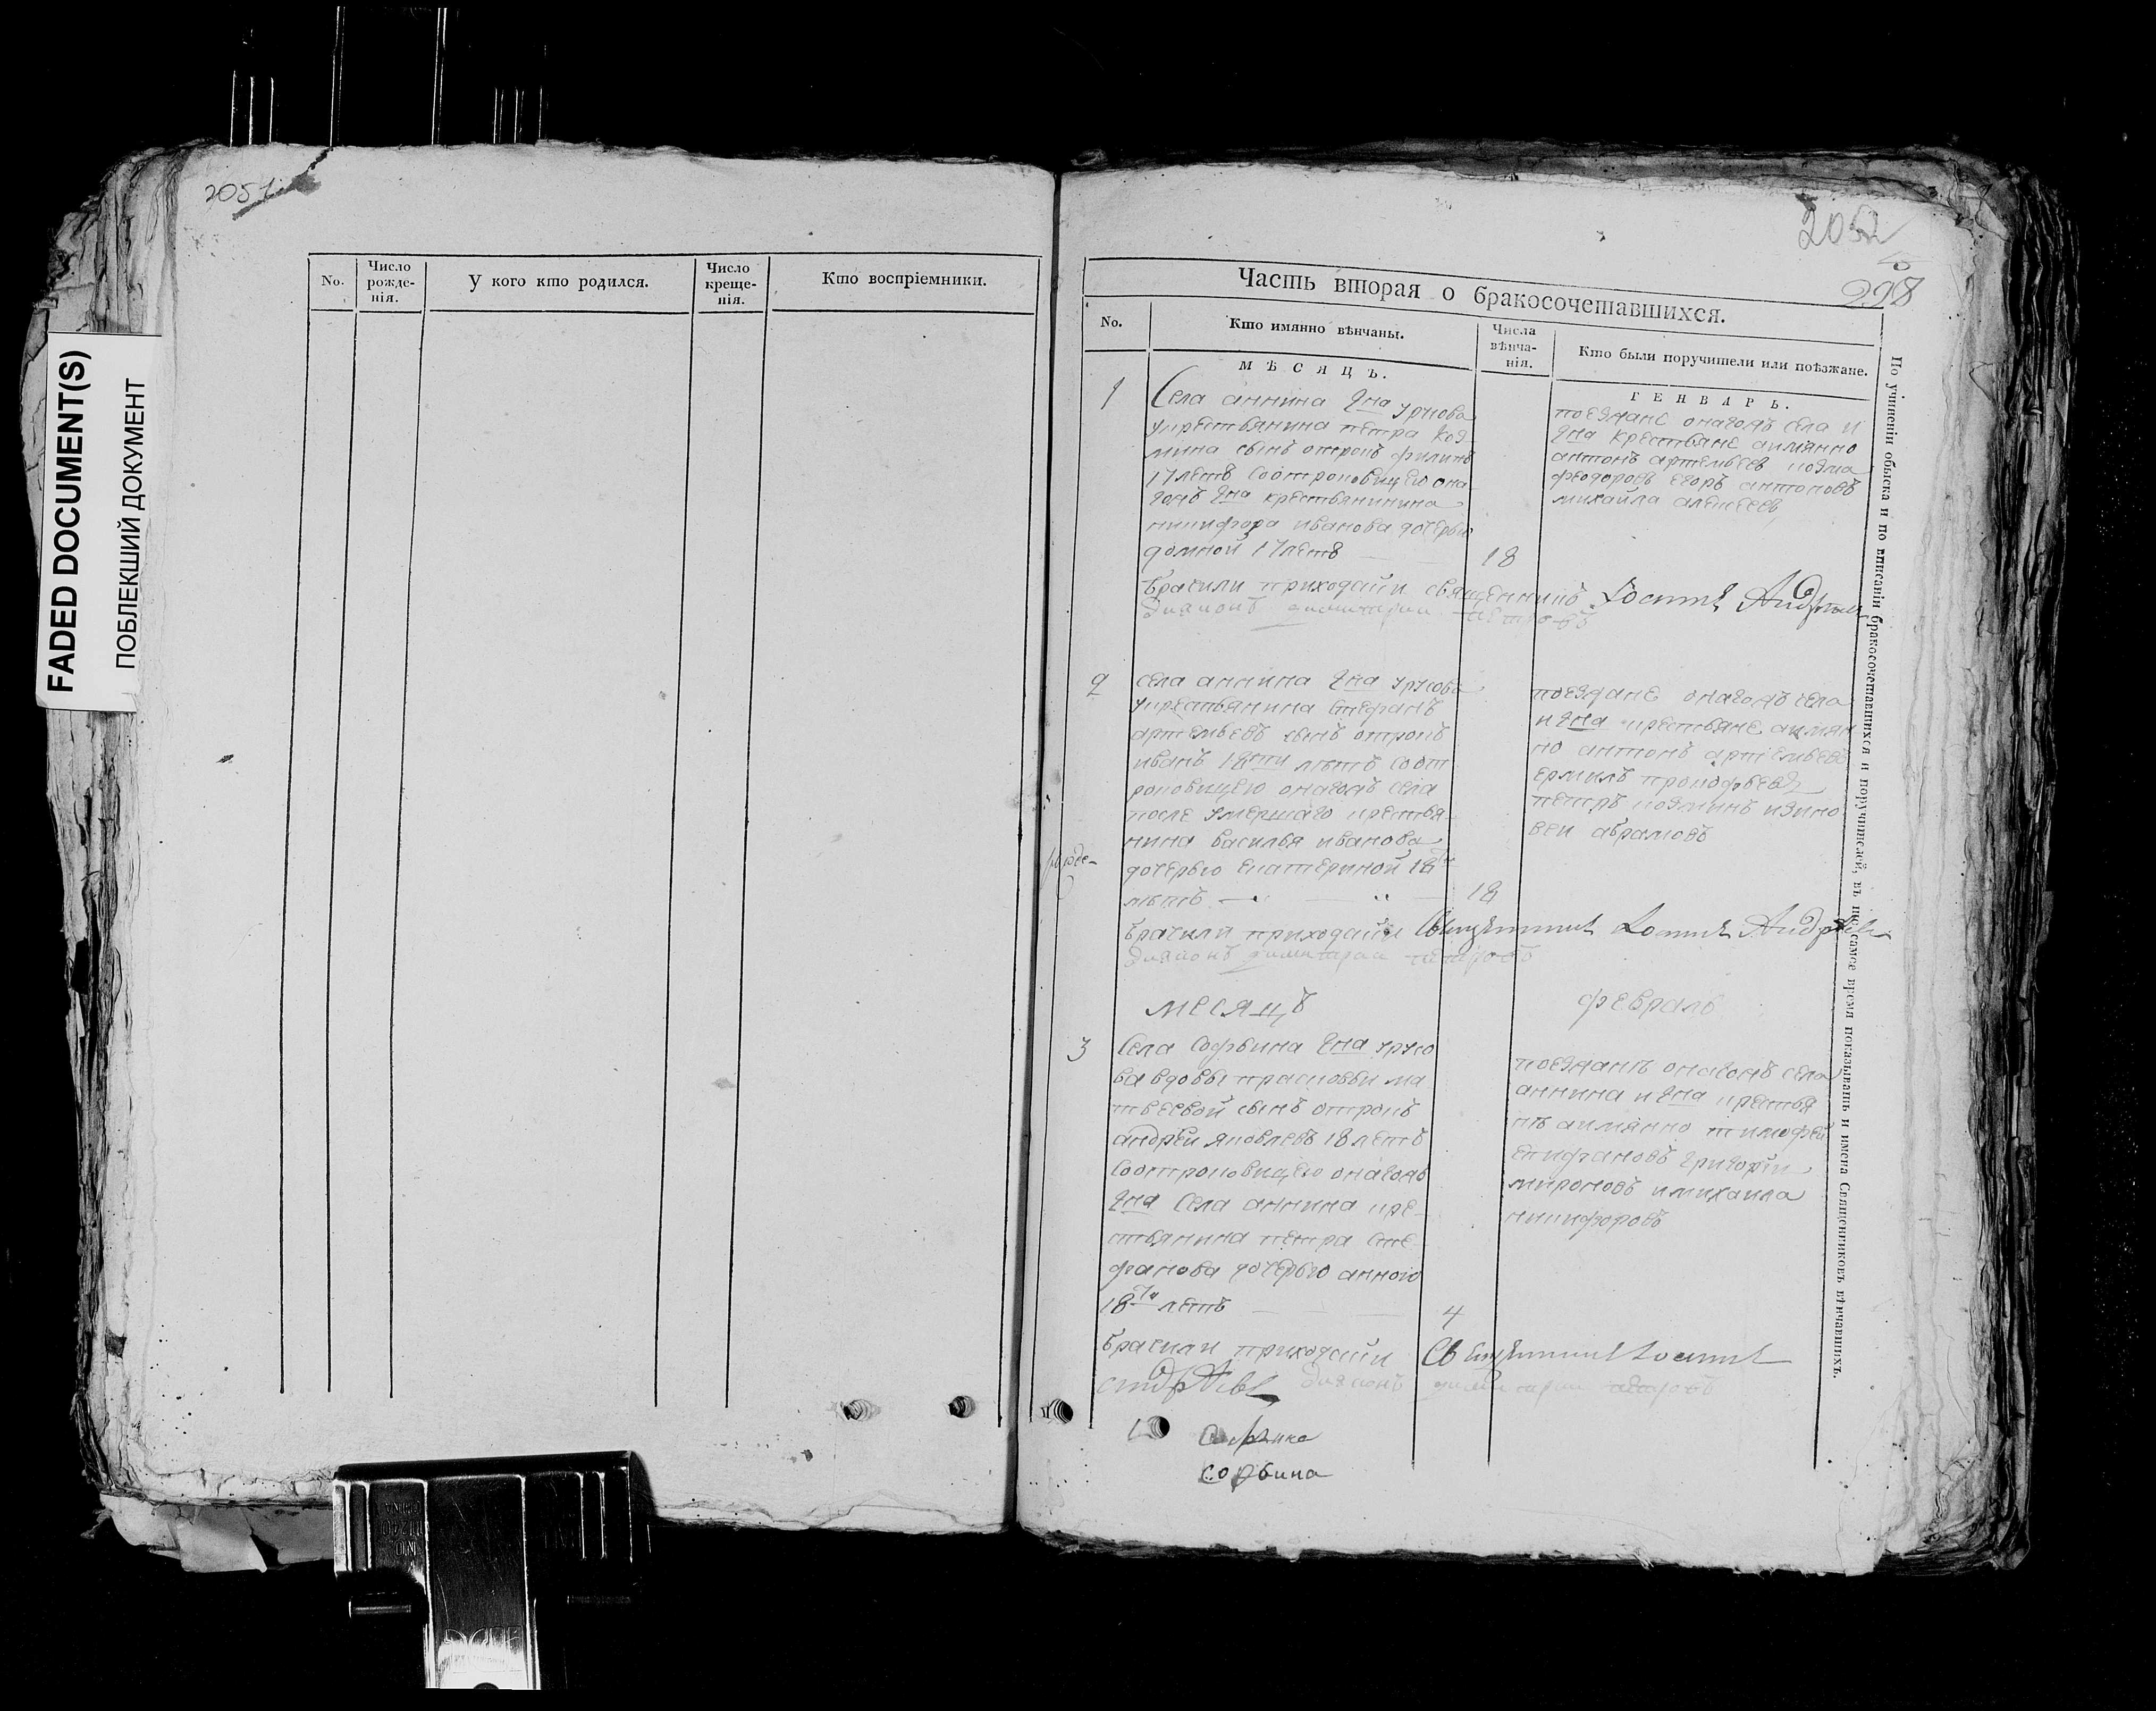 FADED DOCUMENT(S)
ПОБЛЕКШИЙ ДОКУМЕНТ
2051
No.
Число рожде-нія.
У кого кто родился.
Число креще-нія.
Кто воспріемники.
2052
298
Часть вторая о бракосочетавшихся.
No.
Кто имянно вѣнчаны.
Числа вѣнча-нія.
Кто были поручители или поѣзжане.
МѢСЯЦЪ.
ГЕНВАРЬ.
1
Села аннина гна урусова
укрестьянина петра коз
мина сынъ отрокъ филипъ
17 летъ соотроковицею она
гожъ гна крестьянинина
никифора иванова дочерью
домной 17 летъ
18
поезжане онагожъ села и
гна крестьяне аимянно
антонъ артемьевъ козма
феодоровъ егоръ антоновъ
михайла алексеевъ
Брачили приходскии священникъ Иосифъ Андреевъ
диаконъ димитрии петровъ
2
села аннина гна урусова
укрестьянина стефанъ
артемьевъ сынъ отрокъ
иванъ 18ти лѣтъ соот
роковицею онагожъ села
после умершаго крестья
нина василья иванова
дочерью екатериной 18
лѣтъ
18
поезжане онагожъ села
и гна крестьяне аимян
но антонъ артемьевъ
ермилъ прокофьевъ
петръ козминъ изино
веи абрамовъ
Брачили приходскии Священникъ Иосифъ Андреевъ
диаконъ димитрии петровъ
месяцъ
февраль
3
Села Софьина гна урусо
ва вдовы прасковьи ма
твеевой сынъ отрокъ
андреи яковлевъ 18 летъ
соотроковицею онагожъ
гна Села аннина кре
стьянина петра сте
фанова дочерью анною
18ти летъ
4
поезжанѣ онагожъ села
аннина и гна крестья
нѣ аимянно тимофеи
епифановъ григории
мироновъ имихаила
никифоровъ
Брачили приходскии Священникъ Иосифъ
андреевъ диаконъ димитрии петровъ
Софьина
По учиненіи обыска и по вписаніи бракосочетавшихся и поручителей, въ тожъ самое время показывать и имена Священниковъ вѣнчавшихъ.